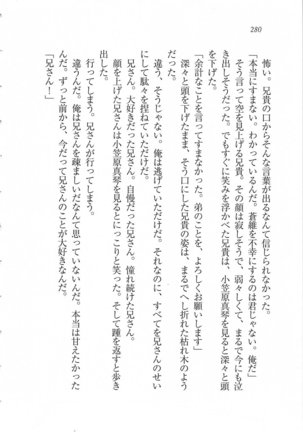 280
怖い。兄貴の口からそんな言葉が出るなんて信じられなかった。
「本当にすまない。わかっているんだ。蒼維を不幸にするのは君じゃない。俺だ」
そう言って空を見上げる兄貴、その顔は寂しそうで、弱々しくて、まるで今にも泣
き出しそうだった。でもすぐに笑みを浮かべた兄貴は、小笠原真琴を見ると深々と頭
を下げた。
「余計なことを言ってすまなかった。弟のことを、よろしくお願いします」
深々と頭を下げたまま、そう口にした兄貴の姿は、まるでへし折れた枯れ木のよう
だった。
違う、そうじゃない。俺は逃げていただけだ。それなのに、すべてを兄さんのせい
にして駄々を捏ねていただけだ。
兄さん。大好きだった兄さん。自慢だった兄さん。憧れ続けた兄さん。
顔を上げた兄さんは小笠原真琴を見るとにっこりと笑った。そして踵を返すと歩き
出した。
行ってしまう。兄さんが行ってしまう。
違うんだ。俺は兄さんを疎ましいだなんて思っていないんだ。本当は甘えたかった
んだ。ずっと前から、今だって兄さんのことが大好きなんだ。
「兄さん！」